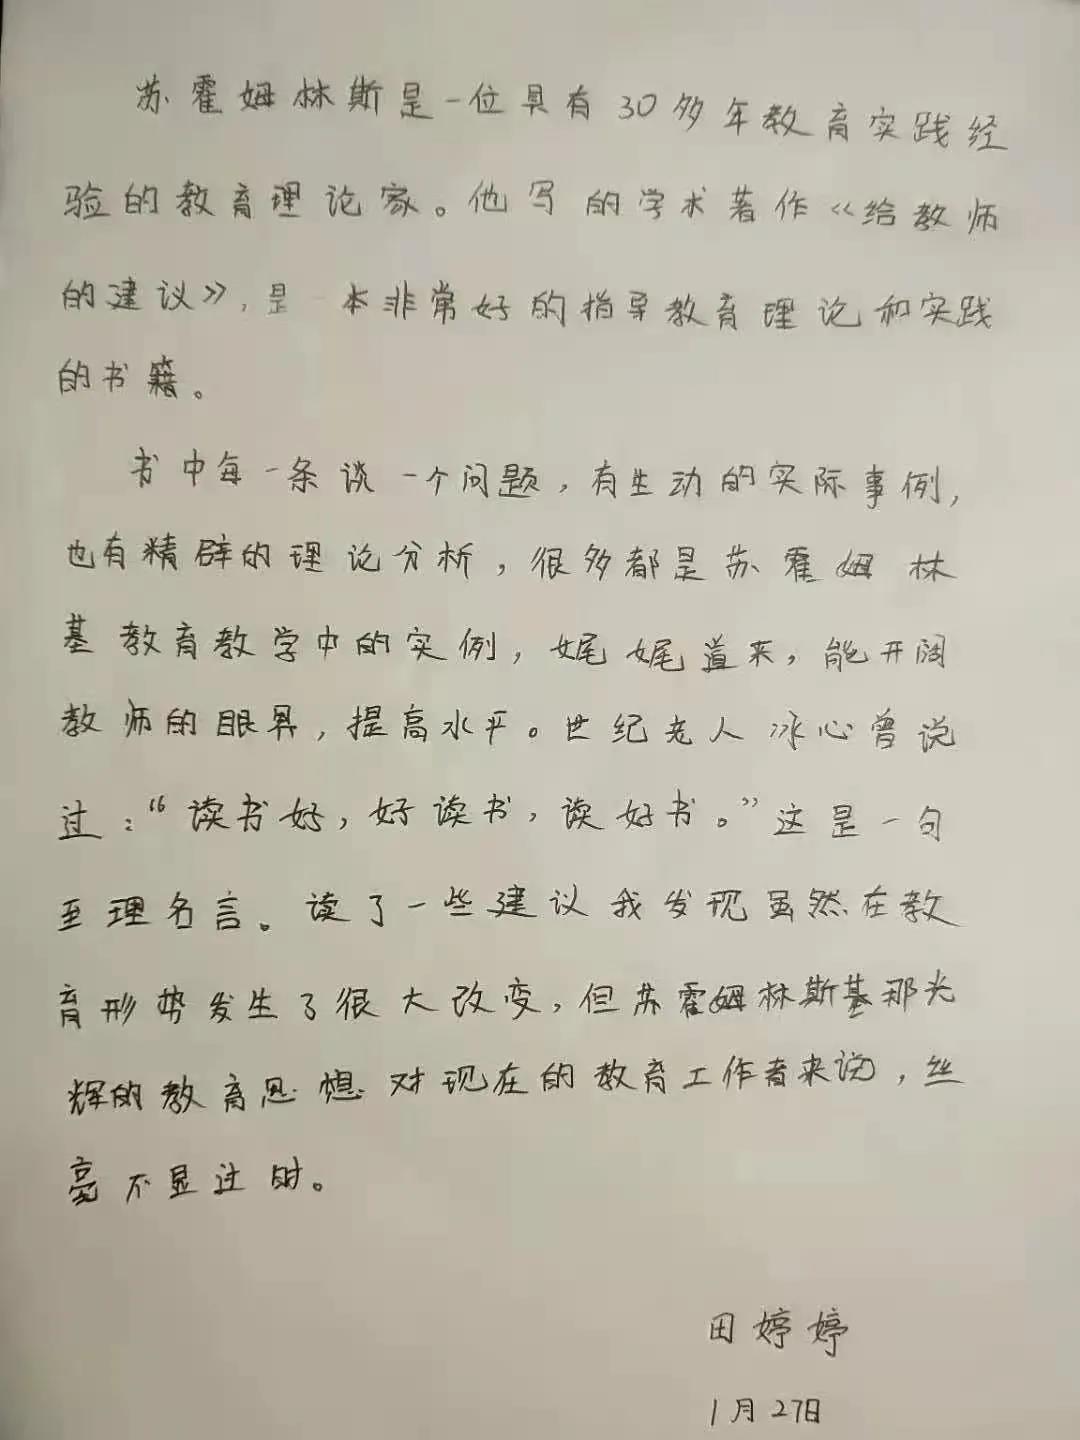 苏霍姆林斯是一位具有30多年教育实践经
验的教育理论家。他写的学术著作《给教师
的建议》,是一本非常好的指导教育理论和实践
的书籍。
书中每一条谈一个问题,有生动的实际事例,
也有精辟的理论分析,很多都是苏霍姆林
基教育教学中的实例,娓娓道来,能开阔
教师的眼界,提高水平。世纪老人冰心曾说
过:“读书好,好读书,读好书。”这是一句
至理名言。读了一些建议我发现虽然在教
育形势发生了很大改变,但苏霍姆林斯基那光
辉的教育思想对现在的教育工作者来说,丝
毫不显过时。
田婷婷
1月27日